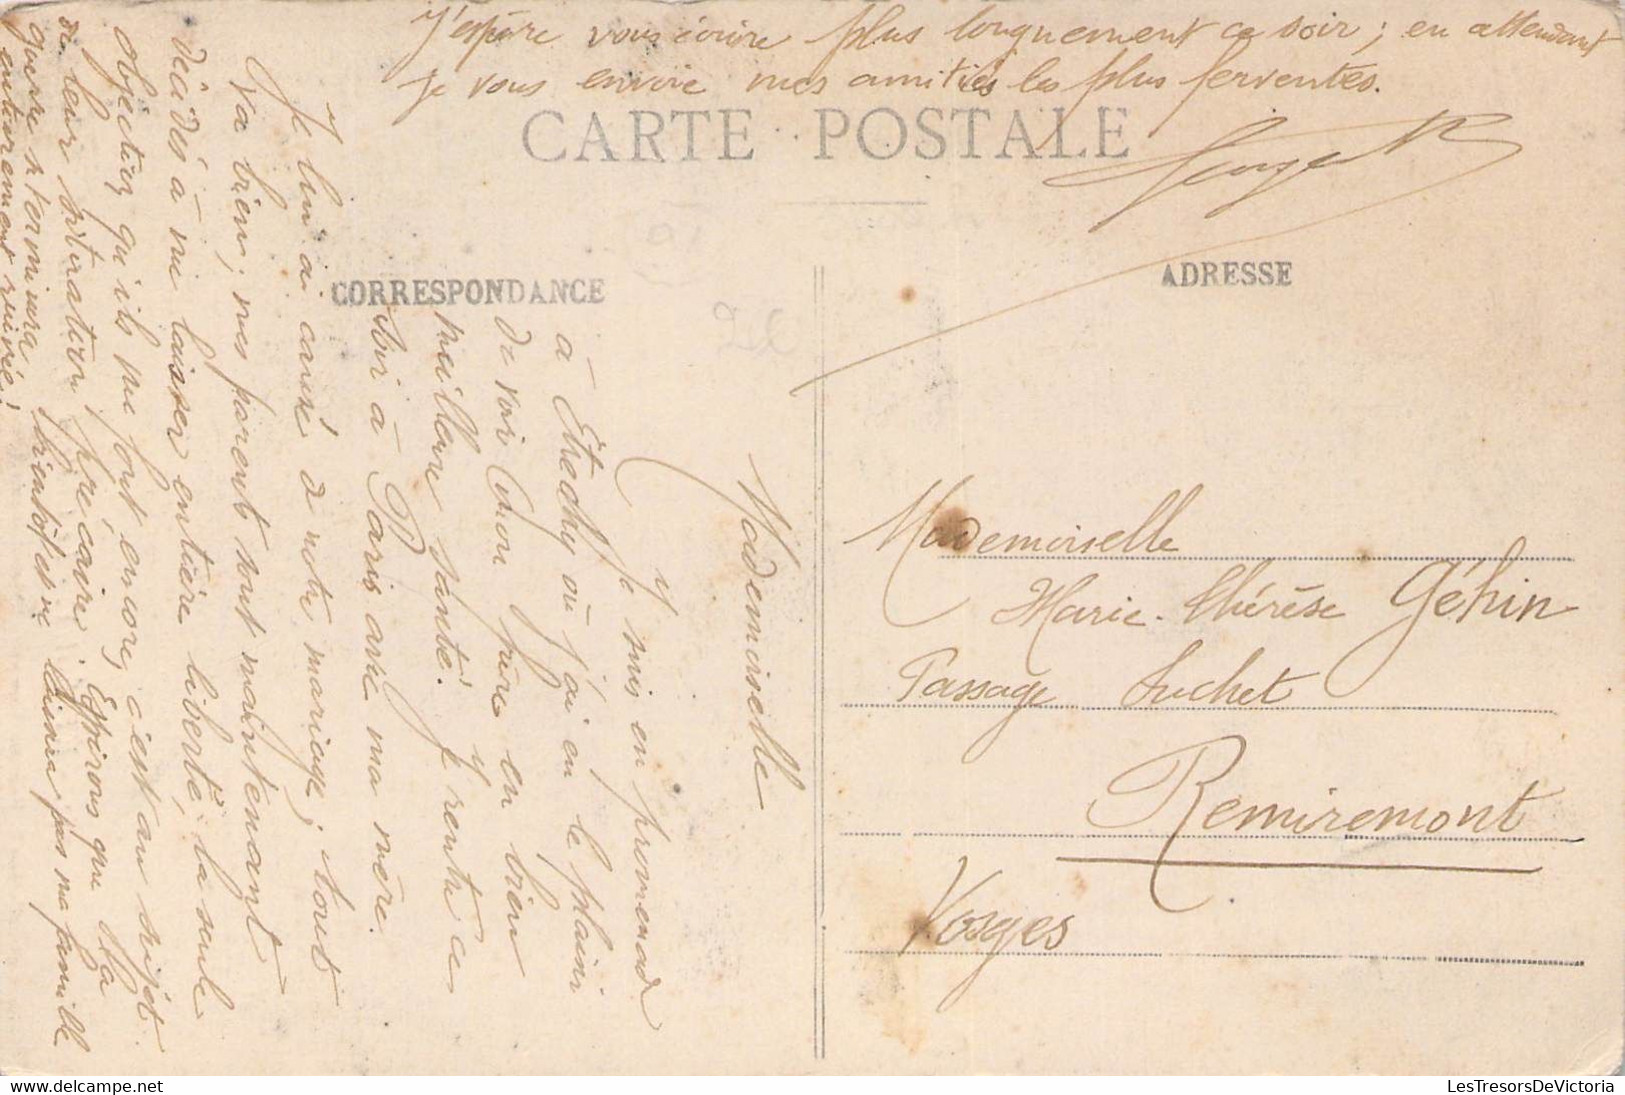 Mademoiselle
Je suis en promenade
à Étrechy où j'ai eu le plaisir
de voir mon père en bien
meilleure santé. Je rentre ce
soir à Paris avec ma mère.
Je lui ai causé de notre mariage; tout
va bien; mes parents sont maintenant
décidés à me laisser entière liberté; la seule
objection qu'ils me font encore, c'est au sujet
de leur situation précaire. Espérons que la
guerre se terminera bientôt et ne laissera pas ma famille
entièrement ruinée!
J'espère vous écrire plus longuement ce soir; en attendant
je vous envoie mes amitiés les plus ferventes.
CARTE POSTALE
CORRESPONDANCE
ADRESSE
Mademoiselle
Marie-Thérèse Géhin
Passage Suchet
Remiremont
Vosges
LesTresorsDeVictoria